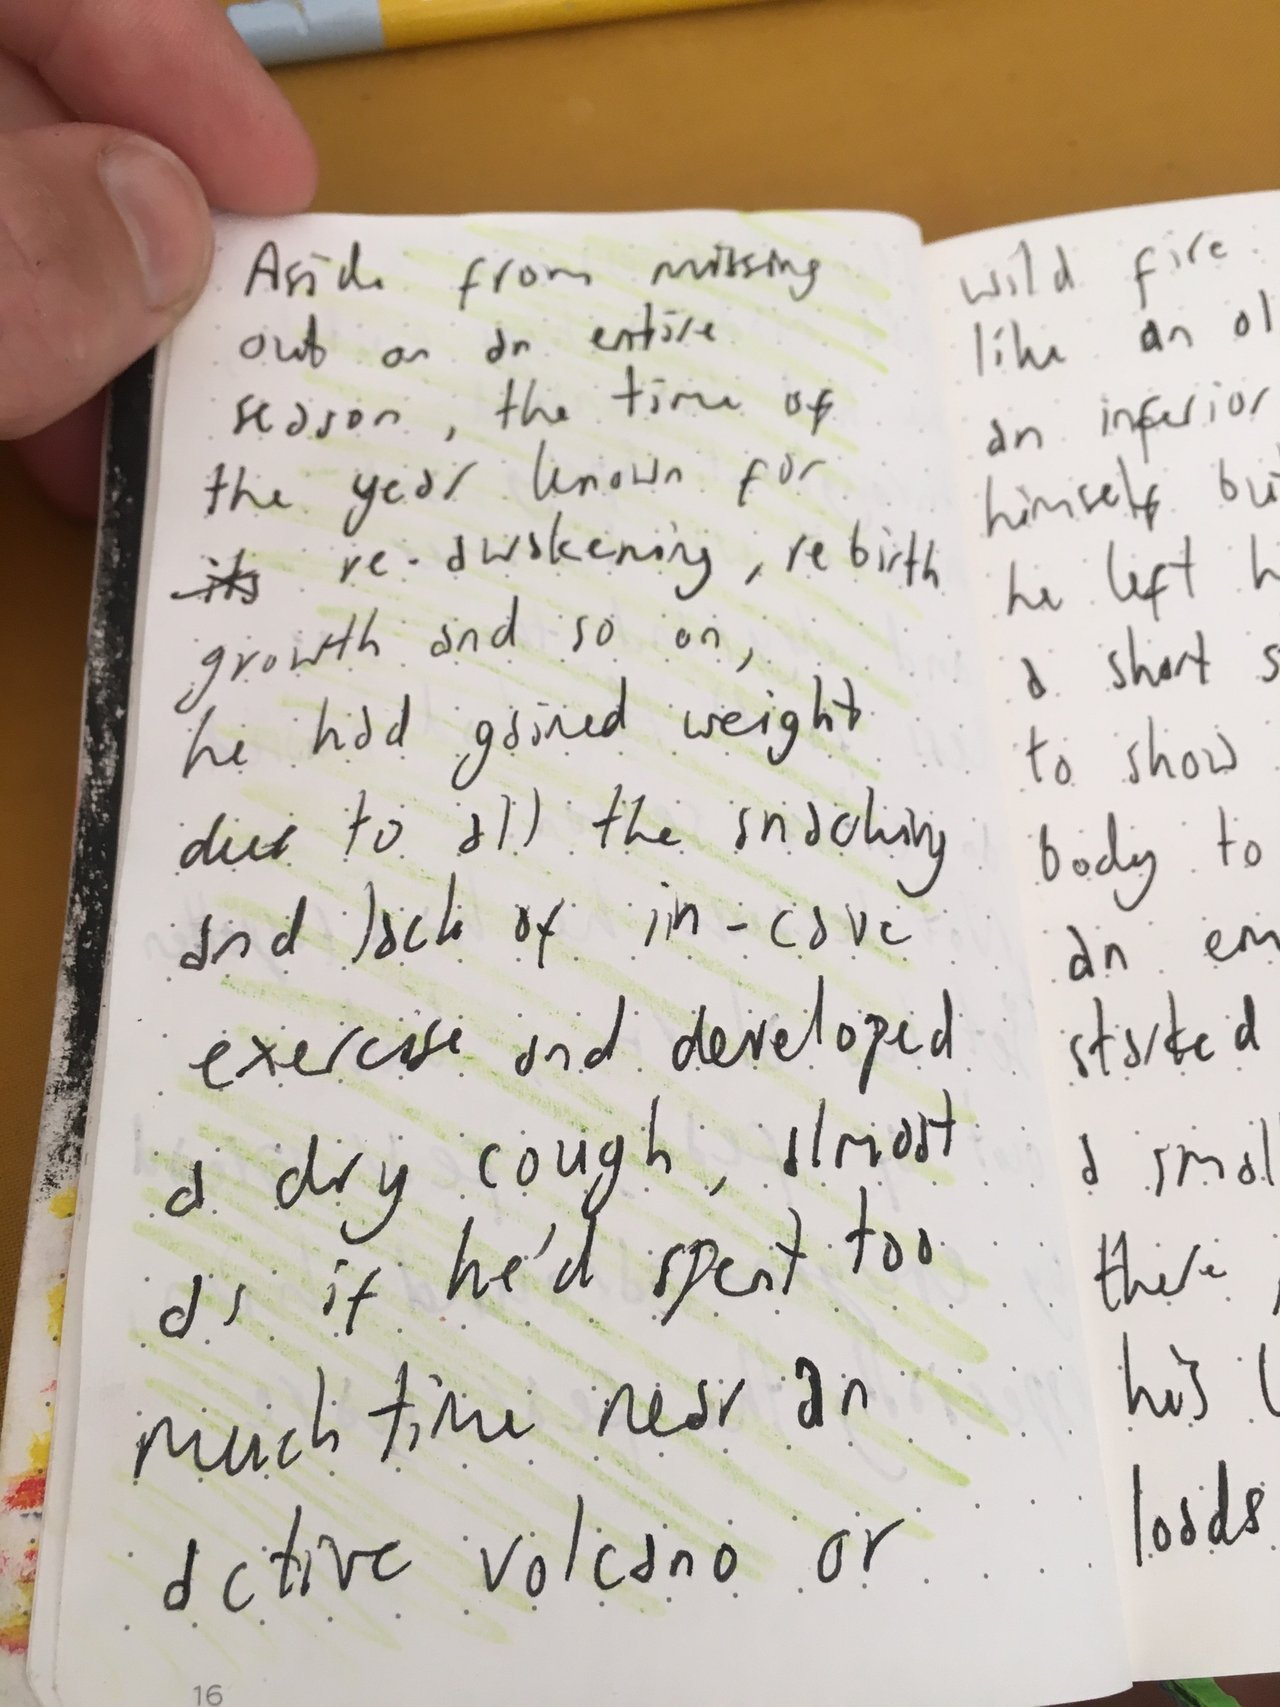 Aside from missing
out on an entire
season, the time of
the year known for
its re-awakening, rebirth
growth and so on,
he had gained weight
due to all the snacking
and lack of in-cave
exercise and developed
a dry cough, almost
as if he'd spent too
much time near an
active volcano or
16
wild fire.
like an ol
an inferior
himself but
he left h
a short s
to show
body to
an em
started
a smal
there
he's
loads